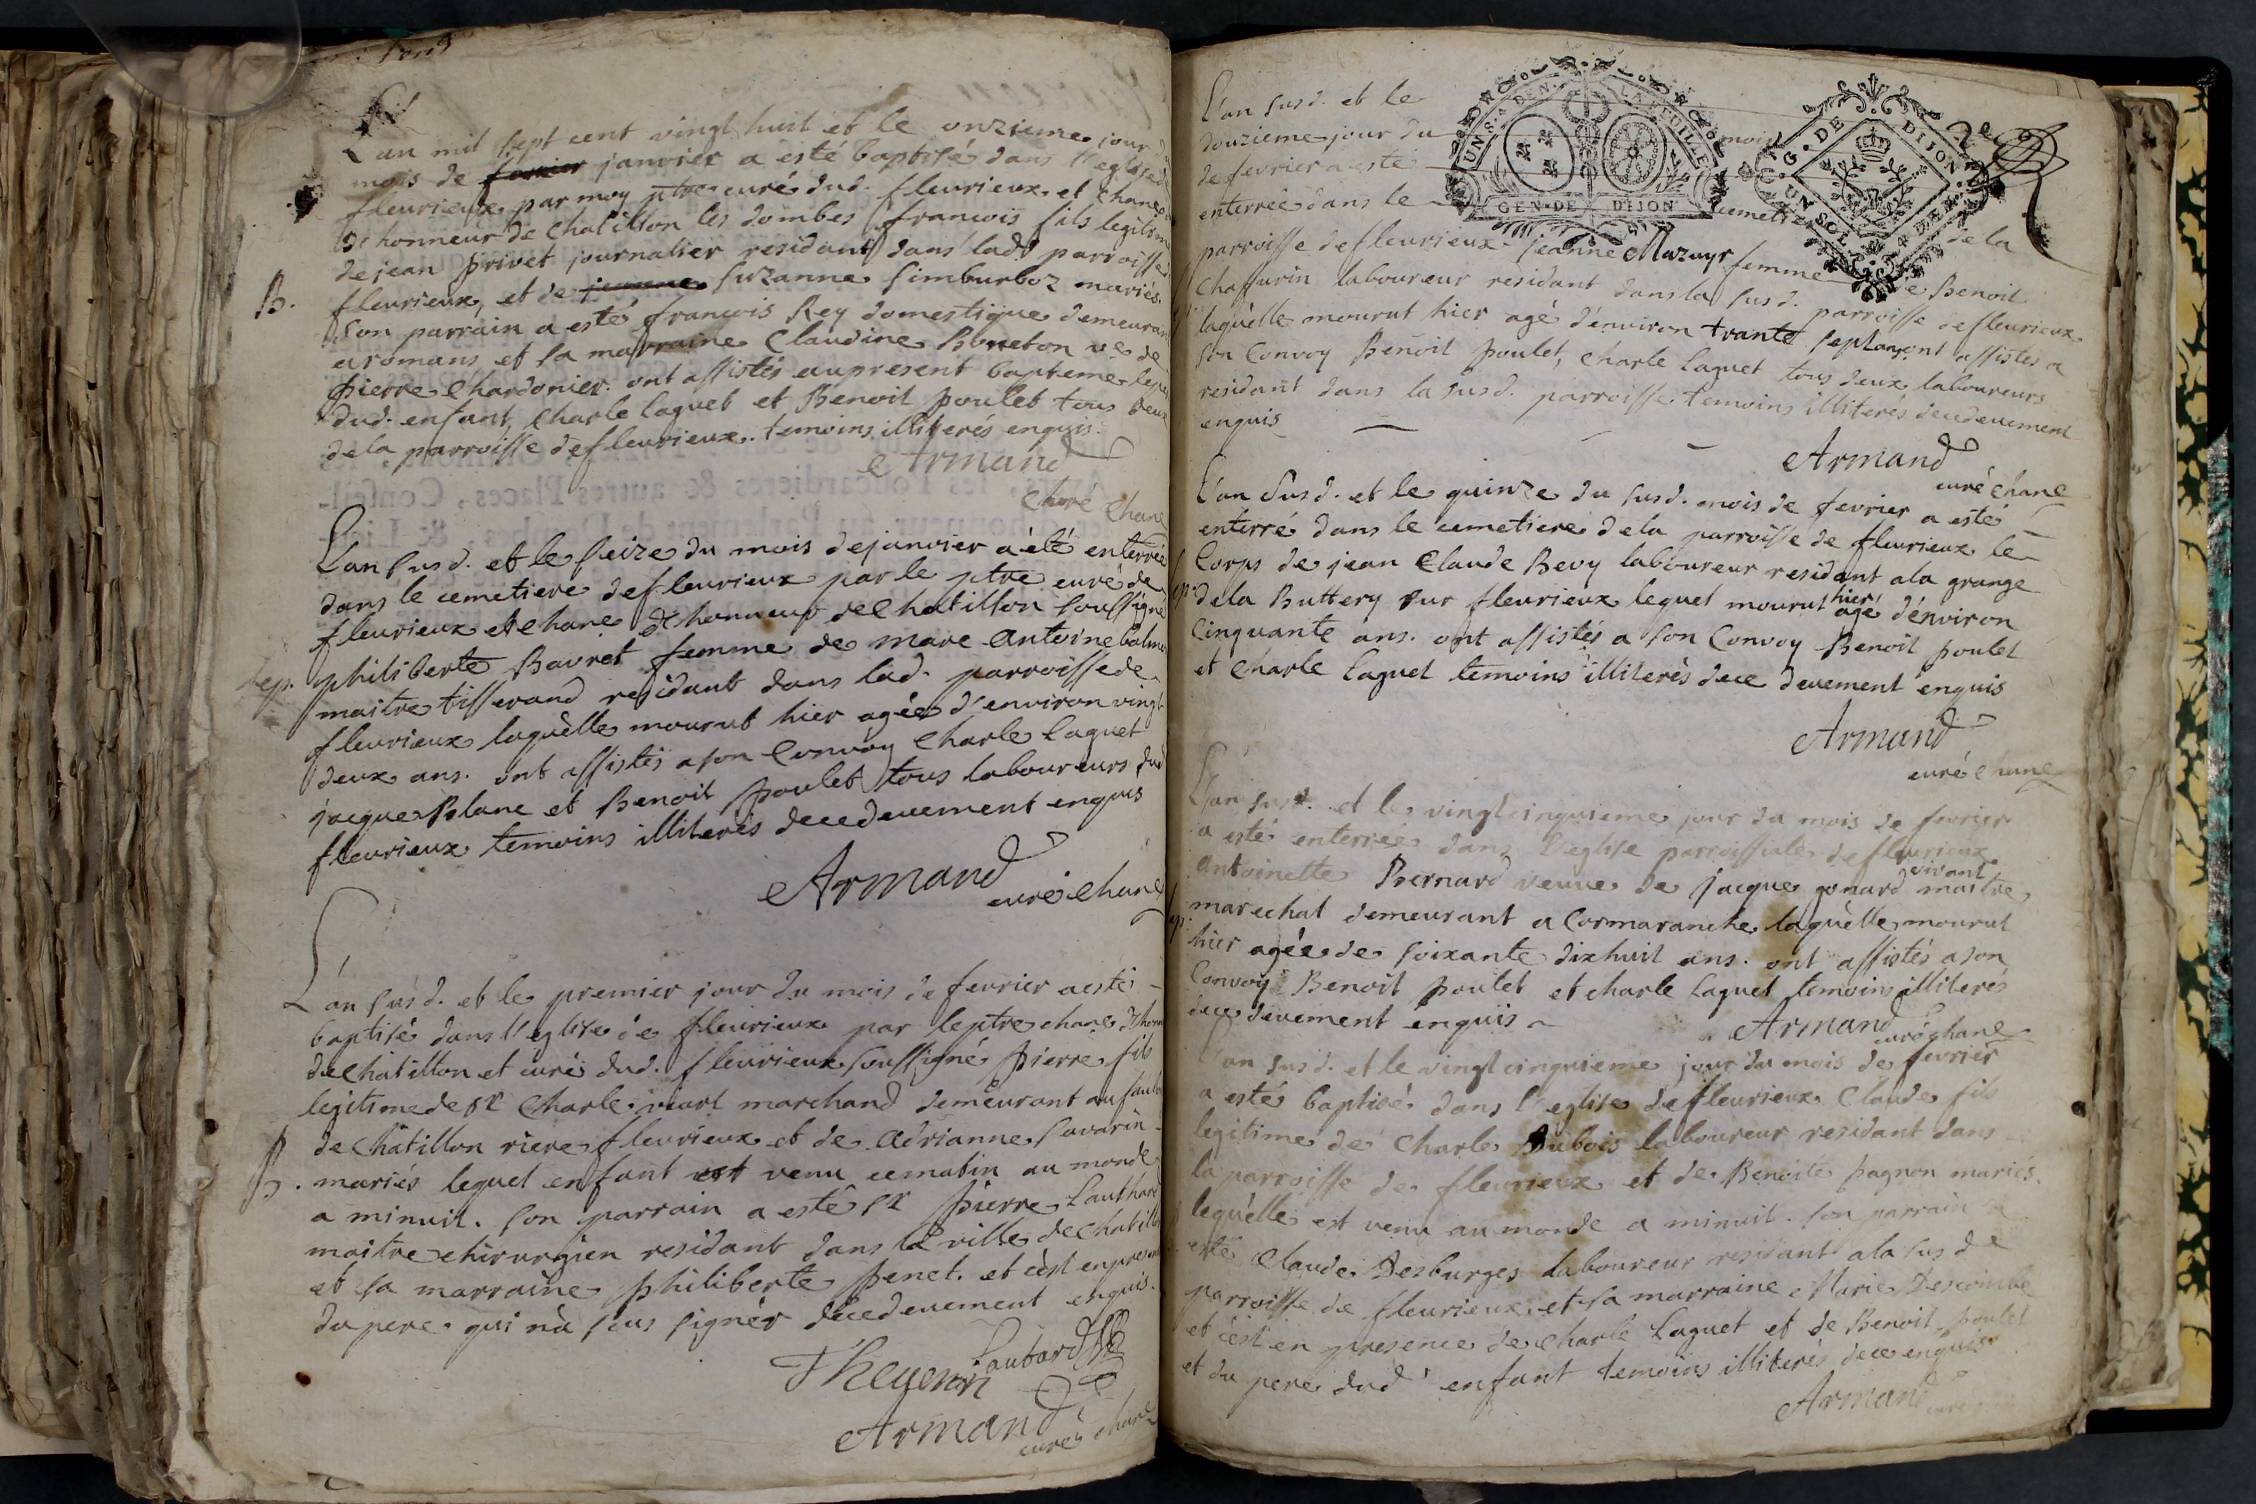 L'an mil sept cent vingt huit et le onzieme jour du
mois de fevrier janvier a esté baptisé dans l'eglise de
fleurieux par moy ptre curé dud. fleurieux et chane
d'honneur de chatillon les dombes francois fils legitime
de jean privet journalier residant dans lad. parroisse
B. fleurieux, et de jeanne suzanne Simburboz mariés.
son parrain a esté francois Rey domestique demeurant
a romans et sa marraine Claudine Breton ve de
pierre Chardonier. ont assistés au present bapteme le pere
dud. enfant, Charle Laguet et Benoit poulet tous deux
de la parroisse de fleurieux. temoins illiterés enquis.
Armand
Curé Chane
L'an susd. et le seize du mois de janvier a été enterrée
dans le cemetiere de fleurieux par le ptre curé de
fleurieux et chane d'honneur de Chatillon soussigné
Sep. philiberte Bavret femme de marc antoine balme
maitre tisserand residant dans lad. parroisse de
fleurieux laquèlle mourut hier agée d'environ vingt
deux ans. ont assistés a son Convoy Charle Laguet
jacque Blanc et Benoit poulet tous laboureurs dud
fleurieux temoins illiterés de ce devement enquis
Armand
curé chane
L'an susd. et le premier jour du mois de fevrier a esté
baptisé dans l'eglise de fleurieux par le ptre chane d'hon
de Chatillon et curé dud. fleurieux soussigné pierre fils
legitime de sr Charle viart marchand demeurant au faub
de Chatillon riere fleurieux et de Adrianne Savarin
B. mariés lequel enfant est venu ce matin au monde
a minuit. son parrain a esté sr pierre Lauthard
maitre chirurgien residant dans la ville de Chatillon
et sa marraine philiberte penet. et c'est en presence
du pere qui n'a sçus signér de ce devement enquis.
Lautard
Thevenin
Armand
curé chane
L'an susd. et le
douzieme jour du mois
de fevrier a esté
enterrée dans le cemetiere de la
parroisse de fleurieux Jeanne Mazuyr femme de Benoit
Chassurin laboureur residant dans la susd. parroisse de fleurieux
laquèlle mourut hier agé d'environ trante sept ans ont assistés a
son Convoy Benoit poulet, Charle Laguet tous deux laboureurs
residant dans la susd. parroisse temoins illiterés de ce devement
enquis
Armand
curé chane
L'an susd. et le quinze du susd. mois de fevrier a esté
enterré dans le cemetiere de la parroisse de fleurieux le
Corps de jean Claude Bevy laboureur residant a la grange
sep. de la Buttery sur fleurieux lequel mourut hier agé d'environ
Cinquante ans. ont assistés a son Convoy Benoit poulet
et Charle Laguet temoins illiterés de ce devement enquis
Armand
curé chane
L'an susd. et le vingt cinquieme jour du mois de fevrier
a esté enterree dans l'eglise parroissiale de fleurieux
antoinette Bernard veuve de jacque gonard vivant maitre
marechal demeurant a Cormaranche laquèlle mourut
hier agée de soixante dixhuit ans. ont assistés a son
Convoy Benoit poulet et charle Laguet temoins illiterés
de ce devement enquis
Armand
curé chane
L'an susd. et le vingt cinquieme jour du mois de fevrier
a esté baptisé dans l'eglise de fleurieux Claude fils
legitime de Charle Dubois laboureur residant dans
la parroisse de fleurieux et de Benoite pagnon mariés.
lequèlle est venu au monde a minuit. son parrain a
esté Claude Desburges laboureur residant a la sus de
parroisse de fleurieux et sa marraine Marie Descombe
et c'est en presence de Charle Laguet et de Benoit poulet
et du pere dud enfant temoins illiterés de ce enquis
Armand
UN S. 4 DEN. LA FEUILLE
GEN. DE DIJON
G. DE DIJON
UN SOL 4 DEN.